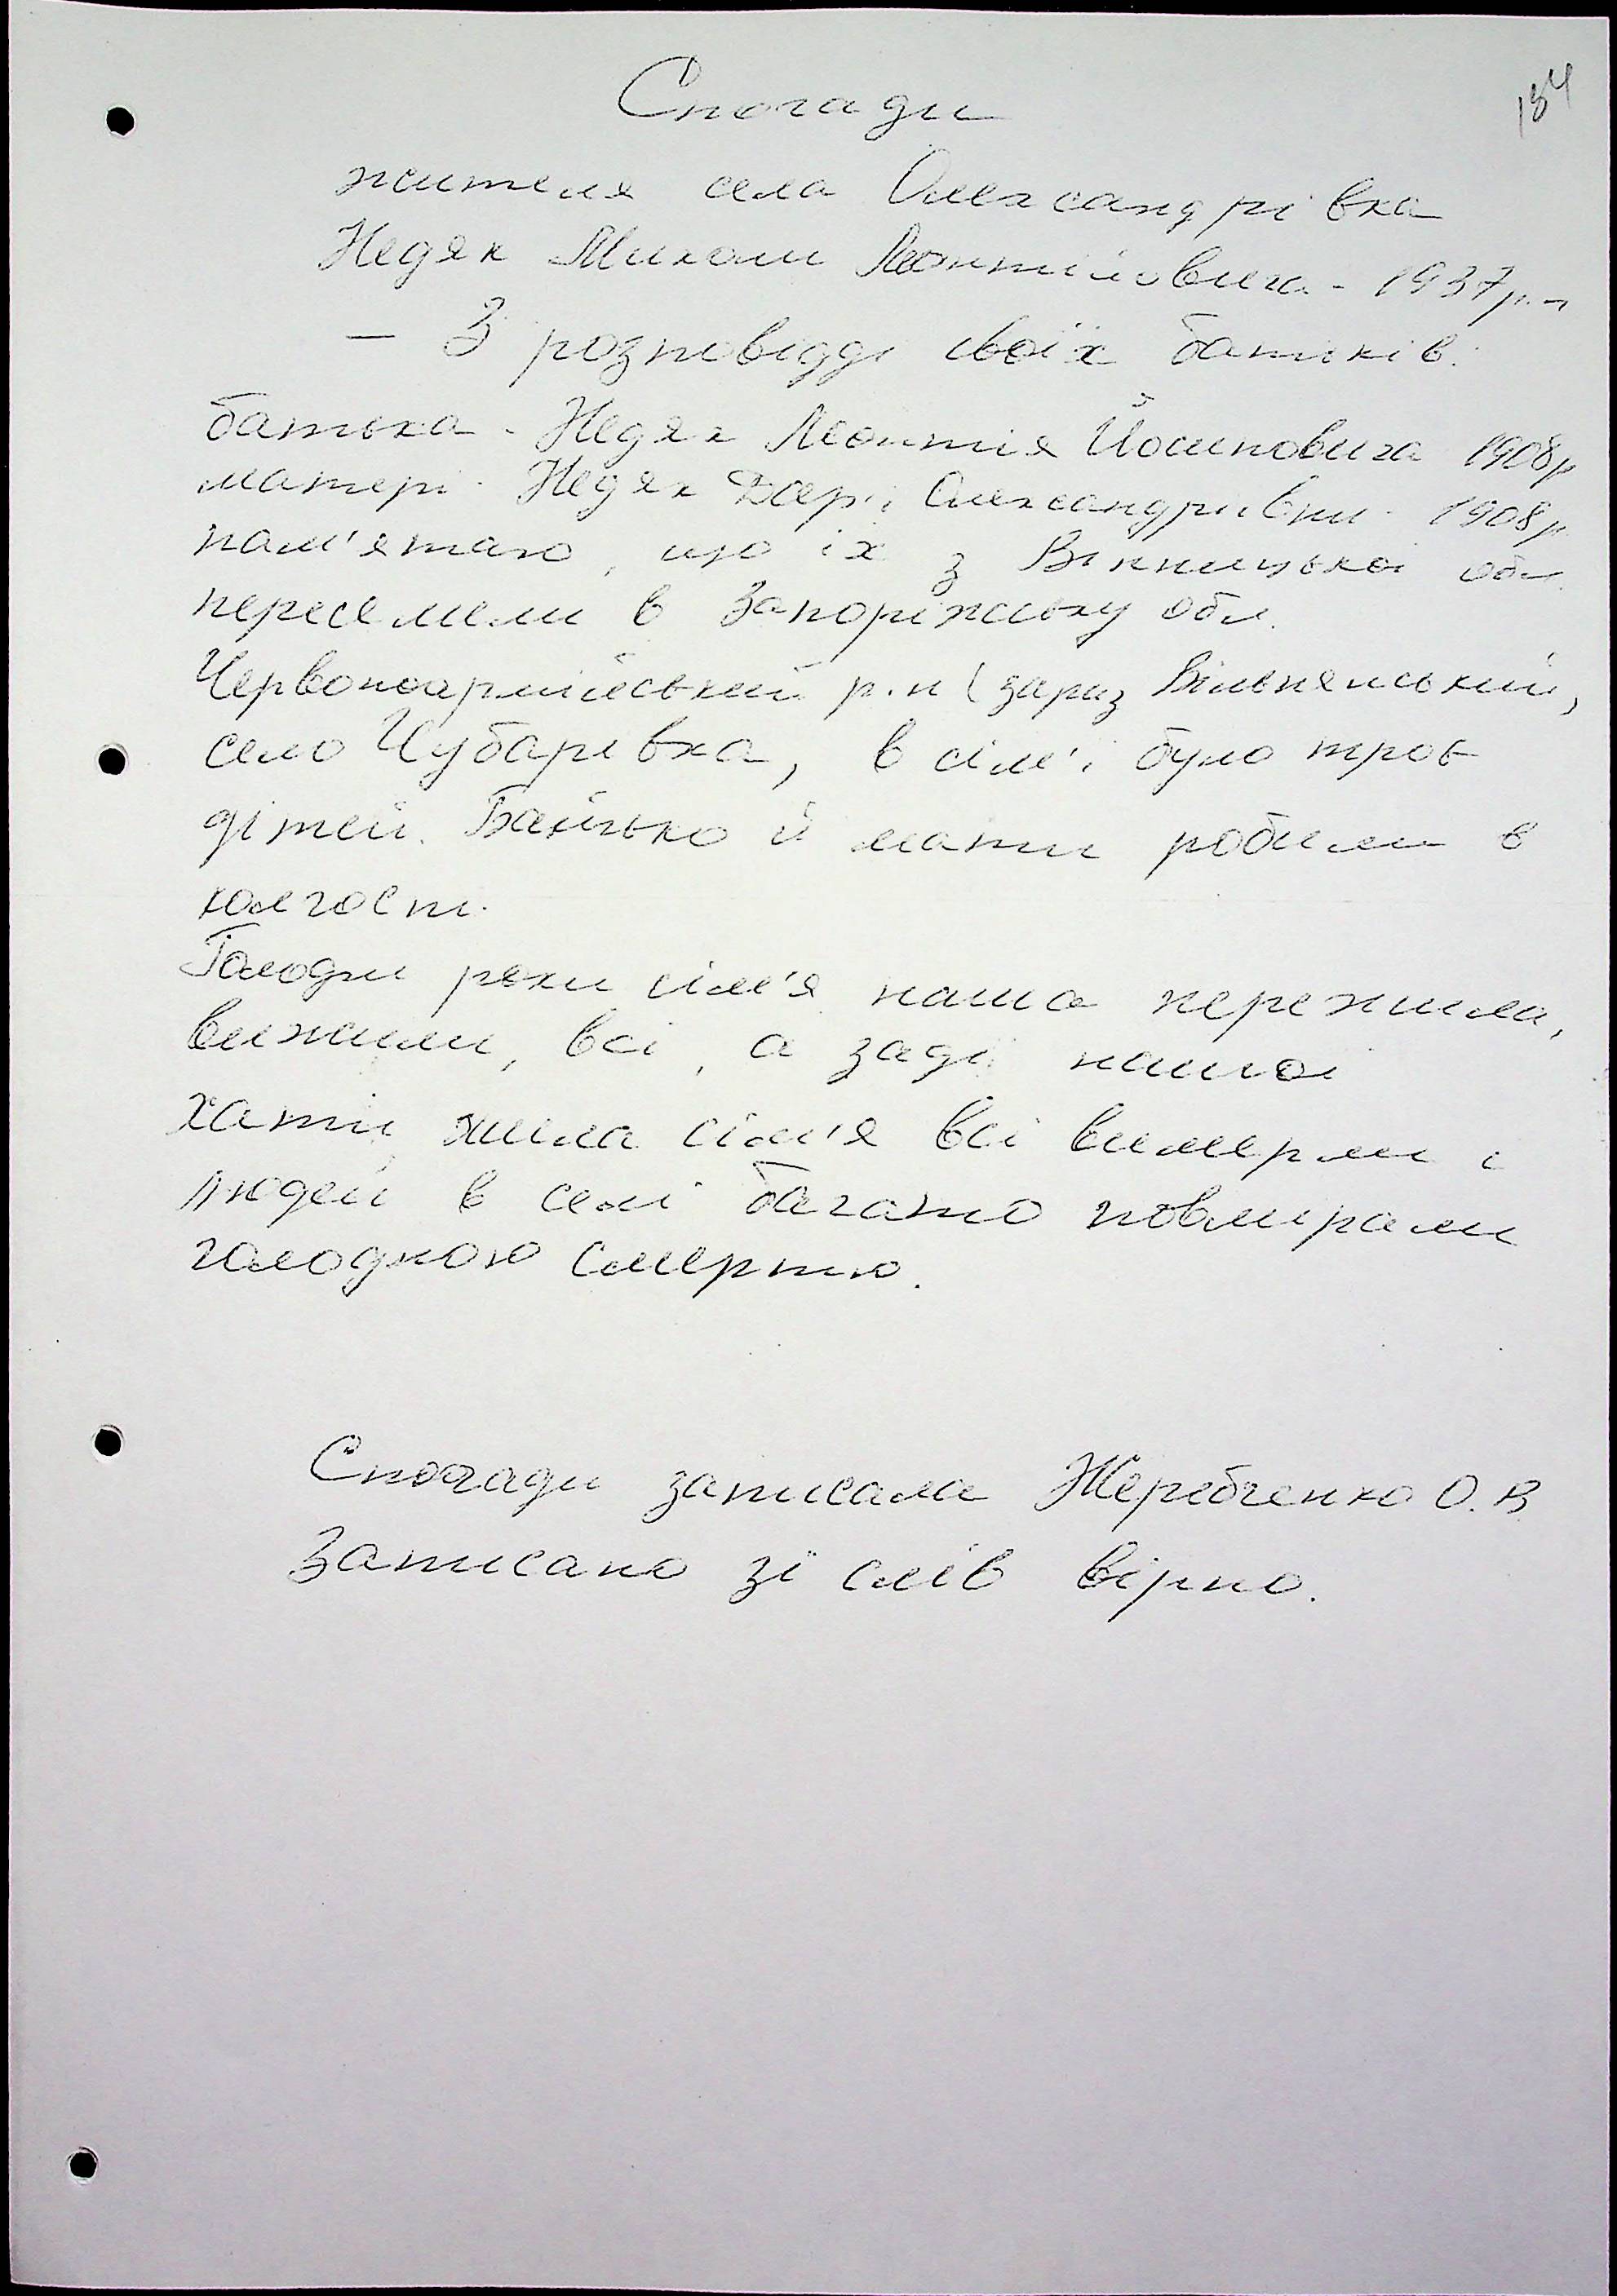 184
Спогади
жителя села Олександрівка
Недяк Миколи Леонтійовича - 1937р.н
- З розповідді своїх батьків:
батька - Недяк Леонтія Йосиповича 1908р
матері - Недяк Дар'ї Олександрівни - 1908р
пам'ятаю, що їх з Вінницької обл
переселили в Запоріжську обл.
Червоноармійський р.н (зараз Вільнянський,
село Чубарівка, в сім'ї було троє
дітей. Батько й мати робили в
колгоспі.
Голодні роки сім'я наша пережила,
вижили, всі, а заді нашої
хати, жила сім'я всі вимерли і
людей в селі багато повмирали
голодною смертю.
Спогади записала Жеребченко О.В
Записано зі слів вірно.